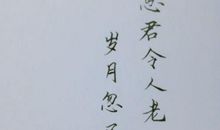 思君令人老
岁月忽